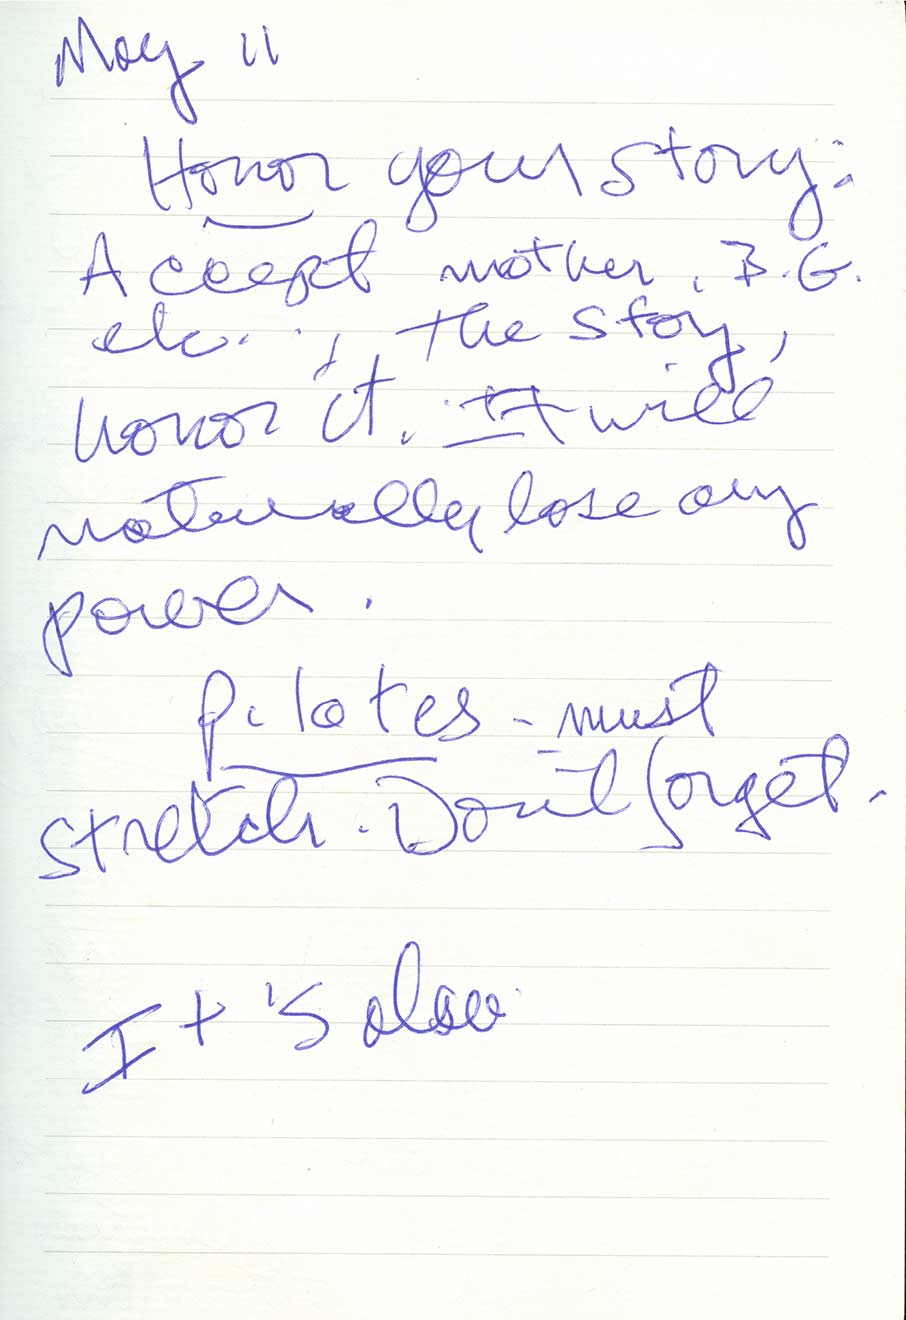 May 11
Honor your story:
Accept mother, B.G.
etc..., the story,
honor it. It will
naturally lose any
power.
Pilates - must
stretch. Don't forget.
It's also